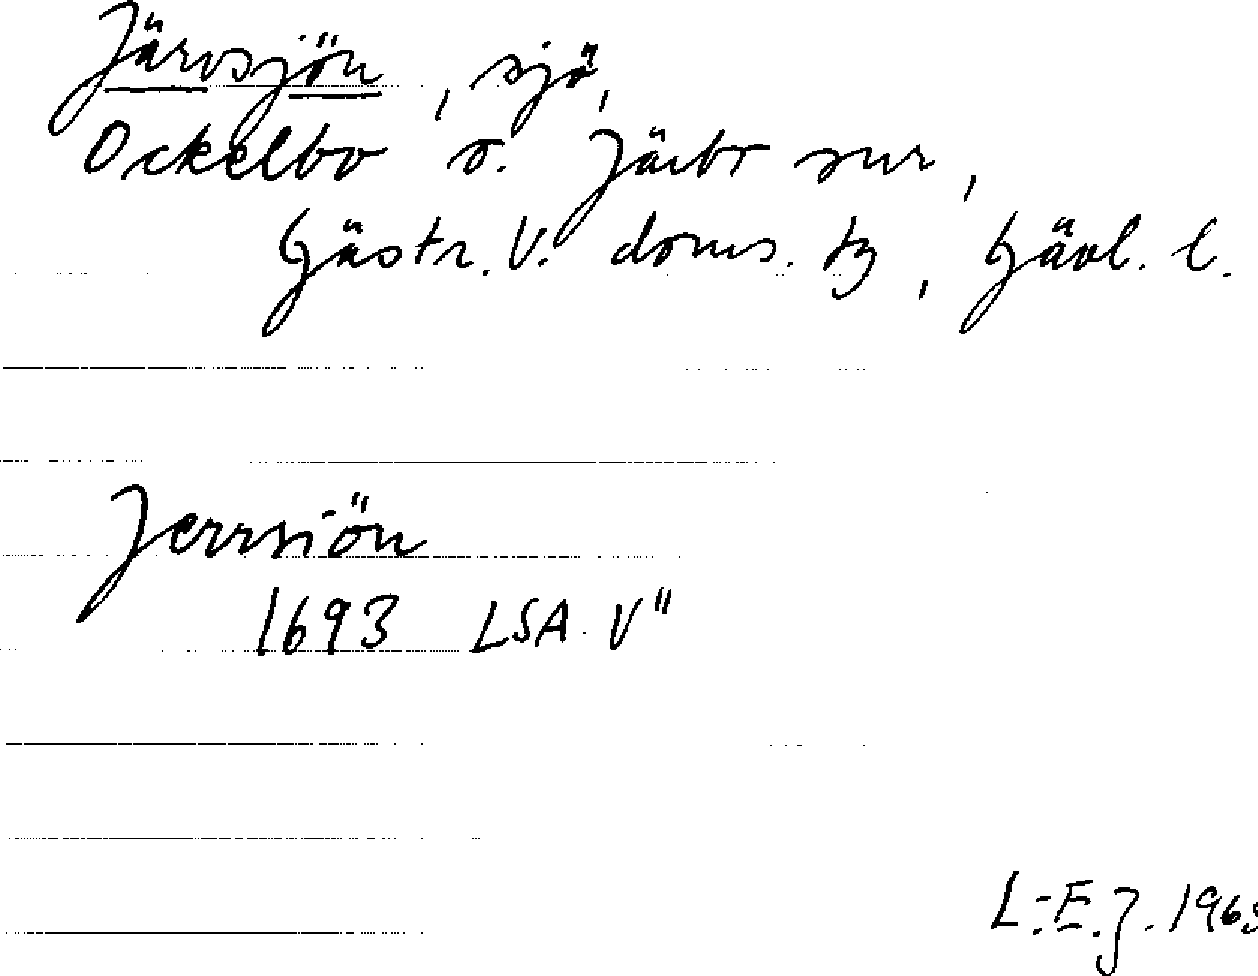 Järvsjön, sjö,
Ockelbo o. Järbo snr,
Gästr. V. doms. tg, Gävl. l.
Jerrsiön
1693 LSA V"
L.-E.J. 1963